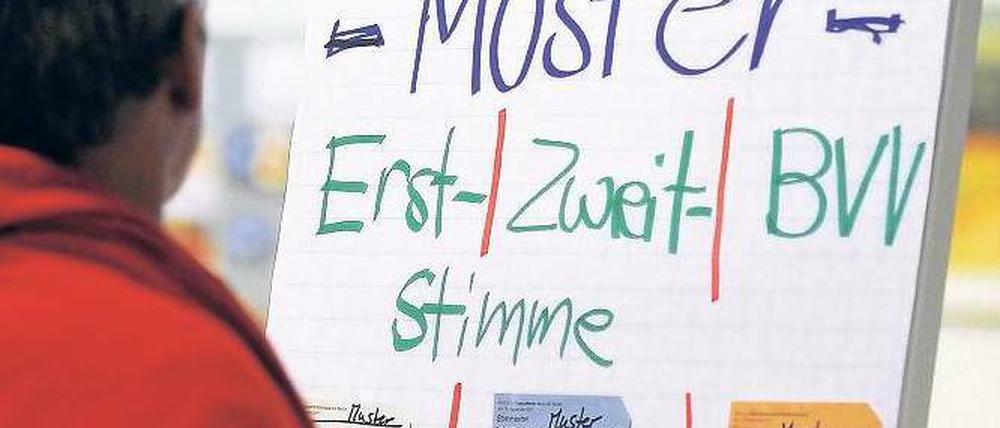 - Muster -
Erst- | Zweit- | BVV
Stimme
Muster Muster Muster